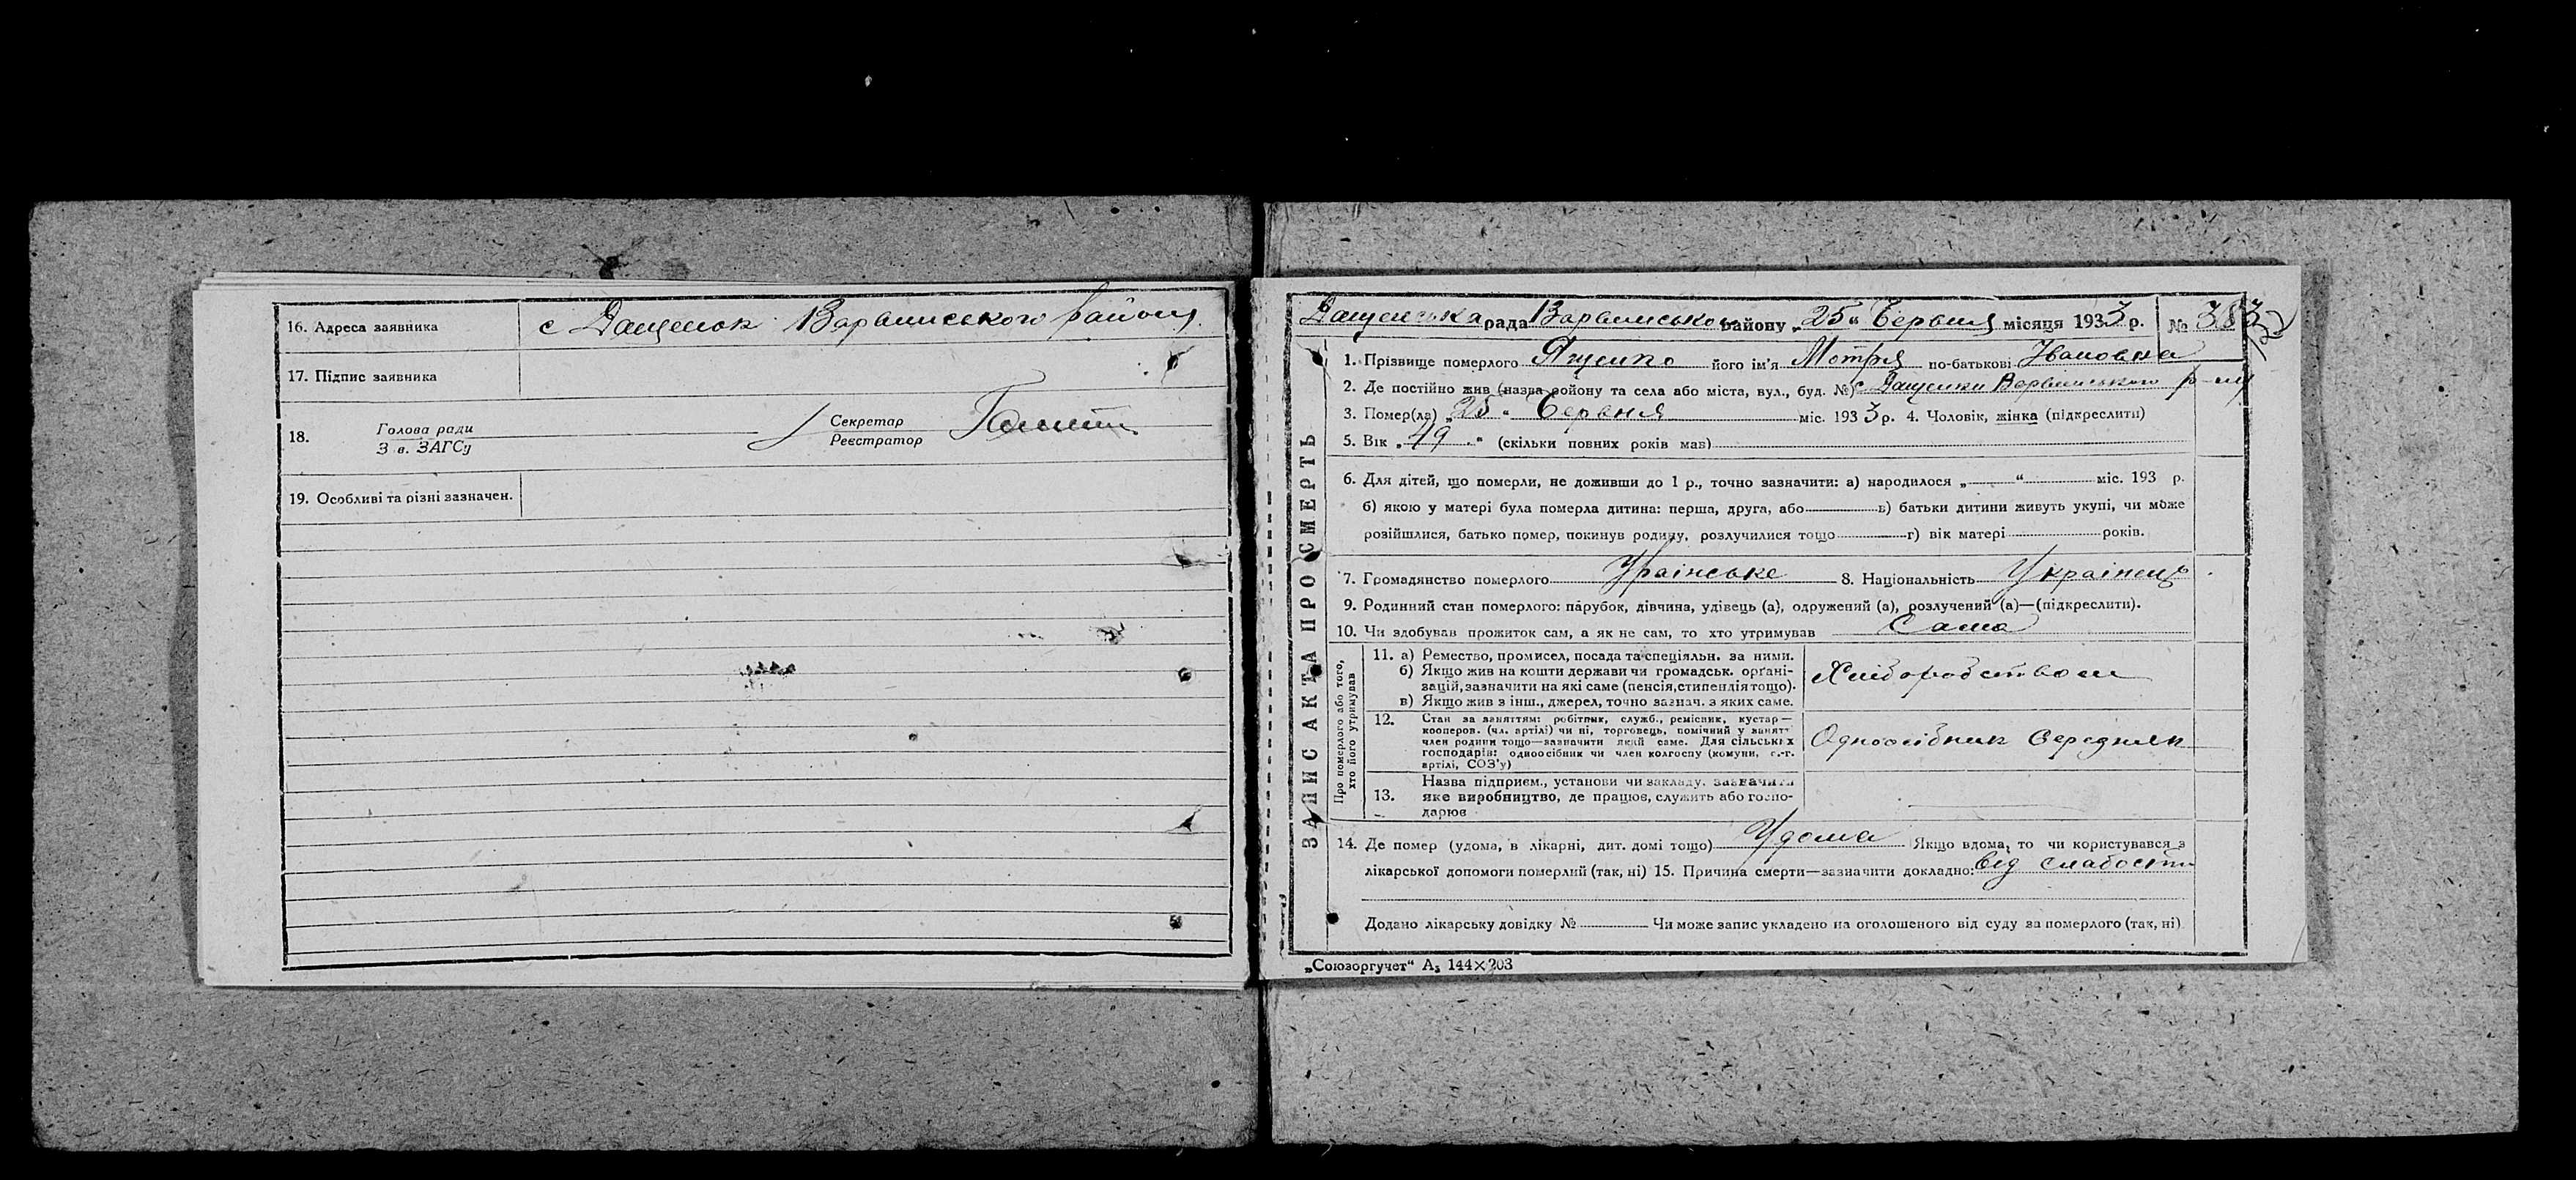 16. Адреса заявника с Дащенок Варвинського району.
17. Підпис заявника
18. Голова ради
З в. ЗАГСу
Секретар
Реєстратор
19. Особливі та різні зазначен.
ЗАПИС АКТА ПРО СМЕРТЬ
Дащенська рада Варвинського району „25“ Червня місяця 1933 р. № 383
1. Прізвище померлого Ященко його ім'я Мотря по-батькові Івановна
2. Де постійно жив (назва району та села або міста, вул., буд. №) с Дащенки Варвинського р-ну
3. Помер(ла) „25“ Червня міс. 1933 р. 4. Чоловік, жінка (підкреслити)
5. Вік „49“ (скільки повних років мав)
6. Для дітей, що померли, не доживши до 1 р., точно зазначити: а) народилося „ “ міс. 193 р.
б) якою у матері була померла дитина: перша, друга, або в) батьки дитини живуть укупі, чи може
розійшлися, батько помер, покинув родину, розлучилися тощо г) вік матері років.
7. Громадянство померлого Украінське 8. Національність Украінець
9. Родинний стан померлого: парубок, дівчина, удівець (а), одружений (а), розлучений (а)—(підкреслити).
10. Чи здобував прожиток сам, а як не сам, то хто утримував Сама
Про померлого або того,
хто його утримував
11. а) Ремество, промисел, посада та спеціяльн. за ними.
б) Якщо жив на кошти держави чи громадськ. органі-
зацій, зазначити на які саме (пенсія, стипендія тощо).
в) Якщо жив з інш., джерел, точно зазнач. з яких саме.
Хліборобством
12. Стан за заняттям: робітник, служб., ремісник, кустар—
кооперов. (чл. артілі) чи ні, торговець, помічний у занят.
член родини тощо—зазначити який саме. Для сільських
господарів: одноосібник чи член колгоспу (комуни, с.-г.
артілі, СОЗ'у)
Одноосібник Середняк
13. Назва підприєм., установи чи закладу, зазначити
яке виробництво, де працює, служить або госпо-
дарює
14. Де помер (удома, в лікарні, дит. домі тощо) Удома Якщо вдома, то чи користувався з
лікарської допомоги померлий (так, ні) 15. Причина смерти—зазначити докладно: від слабости
Додано лікарську довідку № Чи може запис укладено на оголошеного від суду за померлого (так, ні)
„Союзоргучет“ А₅ 144×203